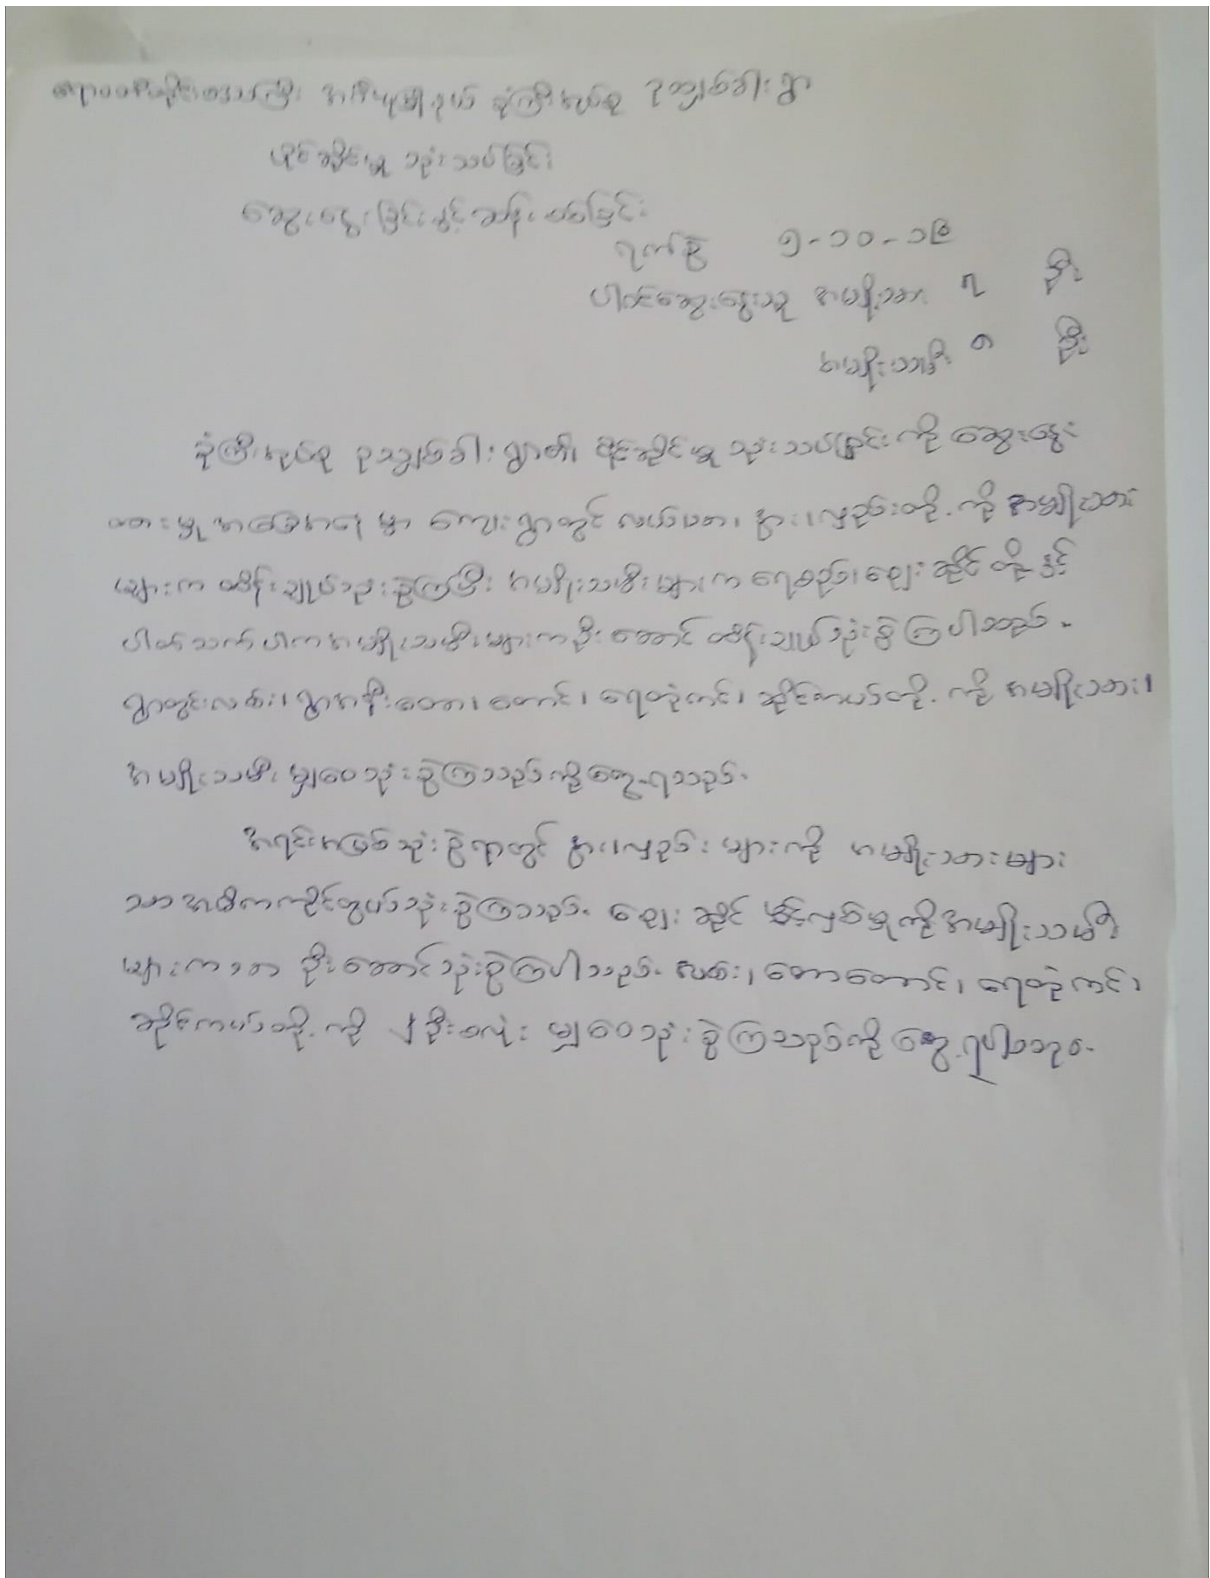 ဧရာဝတီတိုင်းဒေသကြီး ခုံကြီးအုပ်စု ရွာ
ပိုင်ဆိုင်မှု သုံးသပ်ခြင်း
ဆွေးနွေးခြင်းနှင့်ဆန်းစစ်ခြင်း
ရက်စွဲ ၅-၁၀-၁၆
ပါဝင်ဆွေးနွေးသူ အမျိုးသား ၇ ဦး
အမျိုးသမီး ၈ ဦး
ခုံကြီးအုပ်စု ရွာ၏ ပိုင်ဆိုင်မှု သုံးသပ်ခြင်းကို ဆွေးနွေး
ထားမှု အခြေအနေ မှာ ကျေးရွာတွင် လယ်မြေ၊ နွား၊လှည်းတို့ကို အမျိုးသား
များက ထိန်းချုပ်သုံးစွဲကြပြီး အမျိုးသမီးများက ရေစည်၊ဈေးဆိုင်တို့နှင့်
ပါတ်သက်ပါကအမျိုးသမီးများကဦးဆောင်ထိန်းချုပ်သုံးစွဲကြပါသည်။
ရွာတွင်းလမ်း၊ရွာအနီးတော၊တောင်၊ ရေတွင်းကန်၊ ဆိုင်ကယ်တို့ကို အမျိုးသား၊
အမျိုးသမီး မျှဝေသုံးစွဲကြသည်ကိုတွေ့ရသည်။
အရင်းအမြစ်သုံးစွဲရာတွင် နွား၊လှည်းများကို အမျိုးသားများ
သာအဓိကကိုင်တွယ်သုံးစွဲကြသည်။ ဈေးဆိုင် အမျိုးသမီး
များကသာ ဦးဆောင်သုံးစွဲကြပါသည်။ လမ်း၊တောတောင်၊ ရေတွင်းကန်၊
ဆိုင်ကယ်တို့ကို ၂ ဦးစလုံး မျှဝေသုံးစွဲကြသည်ကိုတွေ့ရပါသည်။